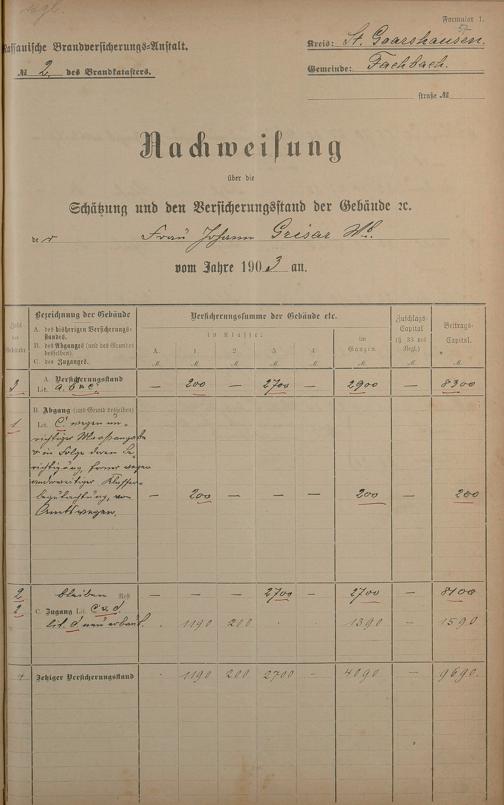 Formular 1.
Nassauische Brandversicherungs-Anstalt.
№ 2. des Brandkatasters.
Kreis: St. Goarshausen.
Gemeinde: Fachbach.
straße №
Nachweisung
über die
Schätzung und den Versicherungsstand der Gebäude ꝛc.
der Frau Johann Grisar Ww.
vom Jahre 1903 an.
Zahl der Gebäude
Bezeichnung der Gebäude
A. des bisherigen Versicherungsstandes.
B. des Abganges (und des Grundes desselben).
C. des Zuganges.
Versicherungssumme der Gebäude etc.
in Klasse:
A. 1 2 3 4
im Ganzen.
Zuschlags-Capital (§ 33 des Regl.)
Beitrags-Capital.
M. M. M. M. M. M. M. M.
A. Versicherungsstand
3 Lit. a, b u c. — 200 — 2700 — 2900 — 8300
B. Abgang (und Grund desselben)
1 Lit. C wegen un-
richtiger
in Folge deren Be-
richtigung, ferner wegen
anderweitiger Klassen-
begutachtung, von
Amtswegen. — 200 — — — 200 — 200
2 bleiben Rest — — — 2700 — 2700 — 8100
2 C. Zugang Lit. C u. d.
lit. d neu erbaut. 1190 200 1390 — 1590
4 Jetziger Versicherungsstand 1190 200 2700 — 4090 — 9690.